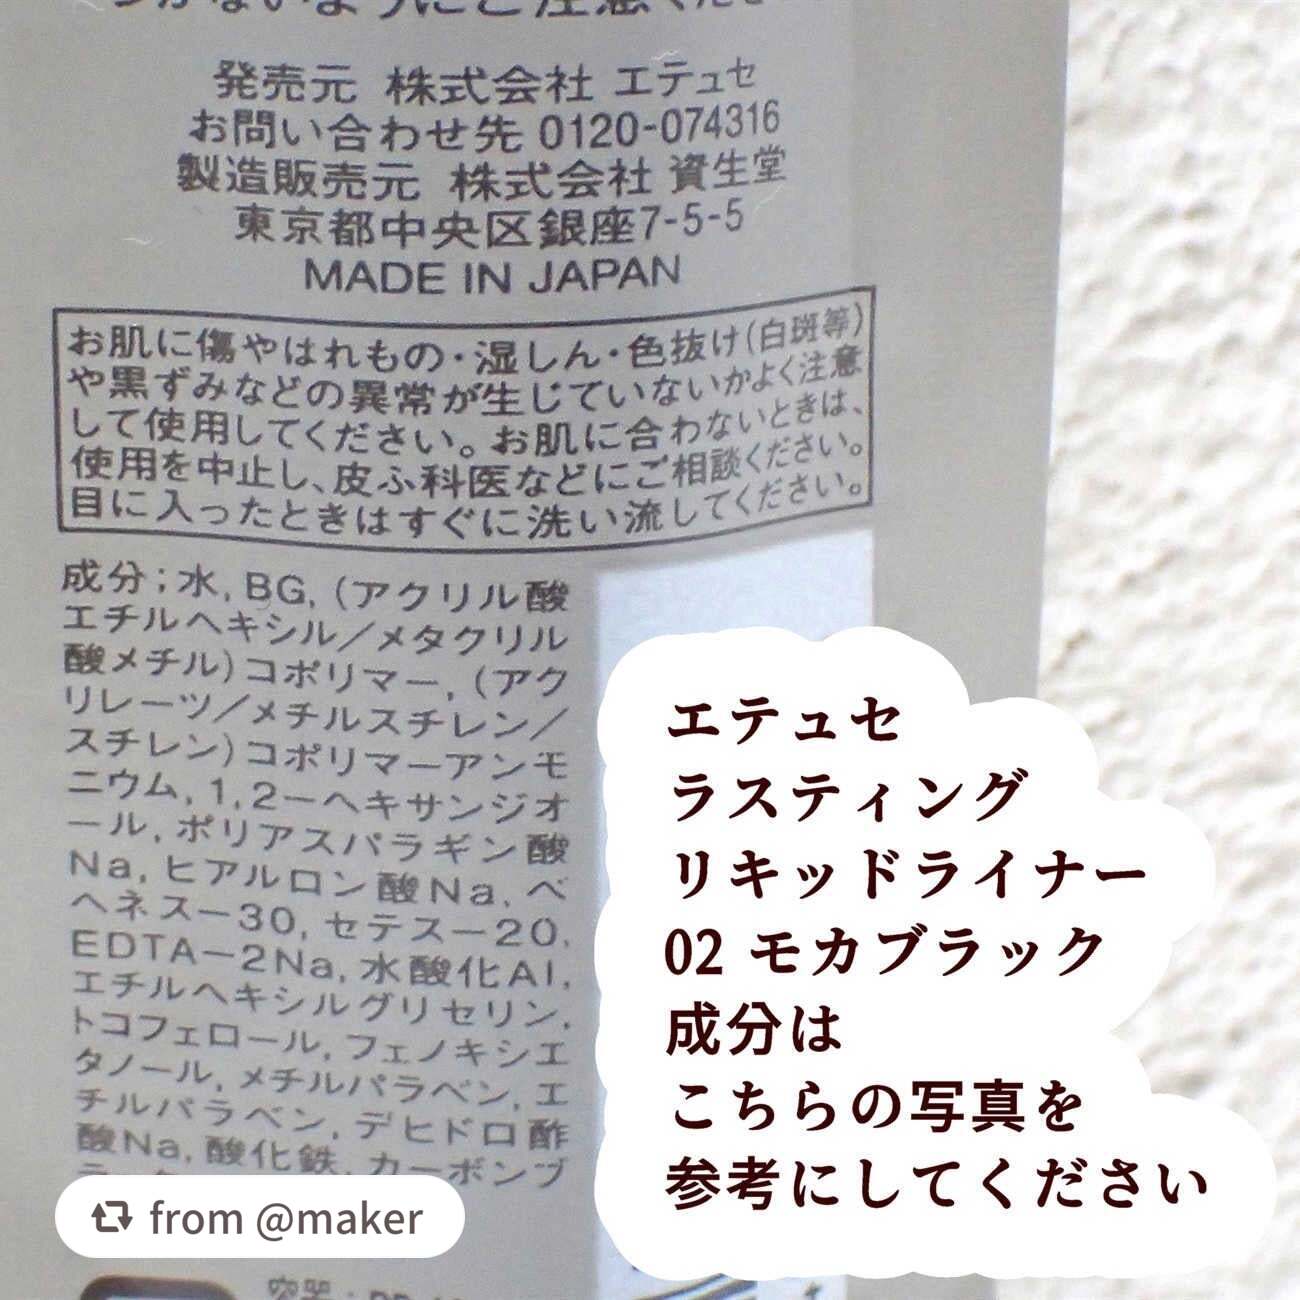 発売元 株式会社 エテュセ
お問い合わせ先 0120-074316
製造販売元 株式会社 資生堂
東京都中央区銀座7-5-5
MADE IN JAPAN
お肌に傷やはれもの・湿しん・色抜け(白斑等)
や黒ずみなどの異常が生じていないかよく注意
して使用してください。お肌に合わないときは、
使用を中止し、皮ふ科医などにご相談ください。
目に入ったときはすぐに洗い流してください。
成分;水, BG, (アクリル酸
エチルヘキシル/メタクリル
酸メチル)コポリマー, (アク
リレーツ/メチルスチレン/
スチレン)コポリマーアンモ
ニウム, 1,2-ヘキサンジオ
ール, ポリアスパラギン酸
Na, ヒアルロン酸Na, ベ
ヘネス-30, セテス-20,
EDTA-2Na, 水酸化Al,
エチルヘキシルグリセリン,
トコフェロール, フェノキシエ
タノール, メチルパラベン, エ
チルパラベン, デヒドロ酢
酸Na, 酸化鉄, カーボンブ
エテュセ
ラスティング
リキッドライナー
02 モカブラック
成分は
こちらの写真を
参考にしてください
from @maker